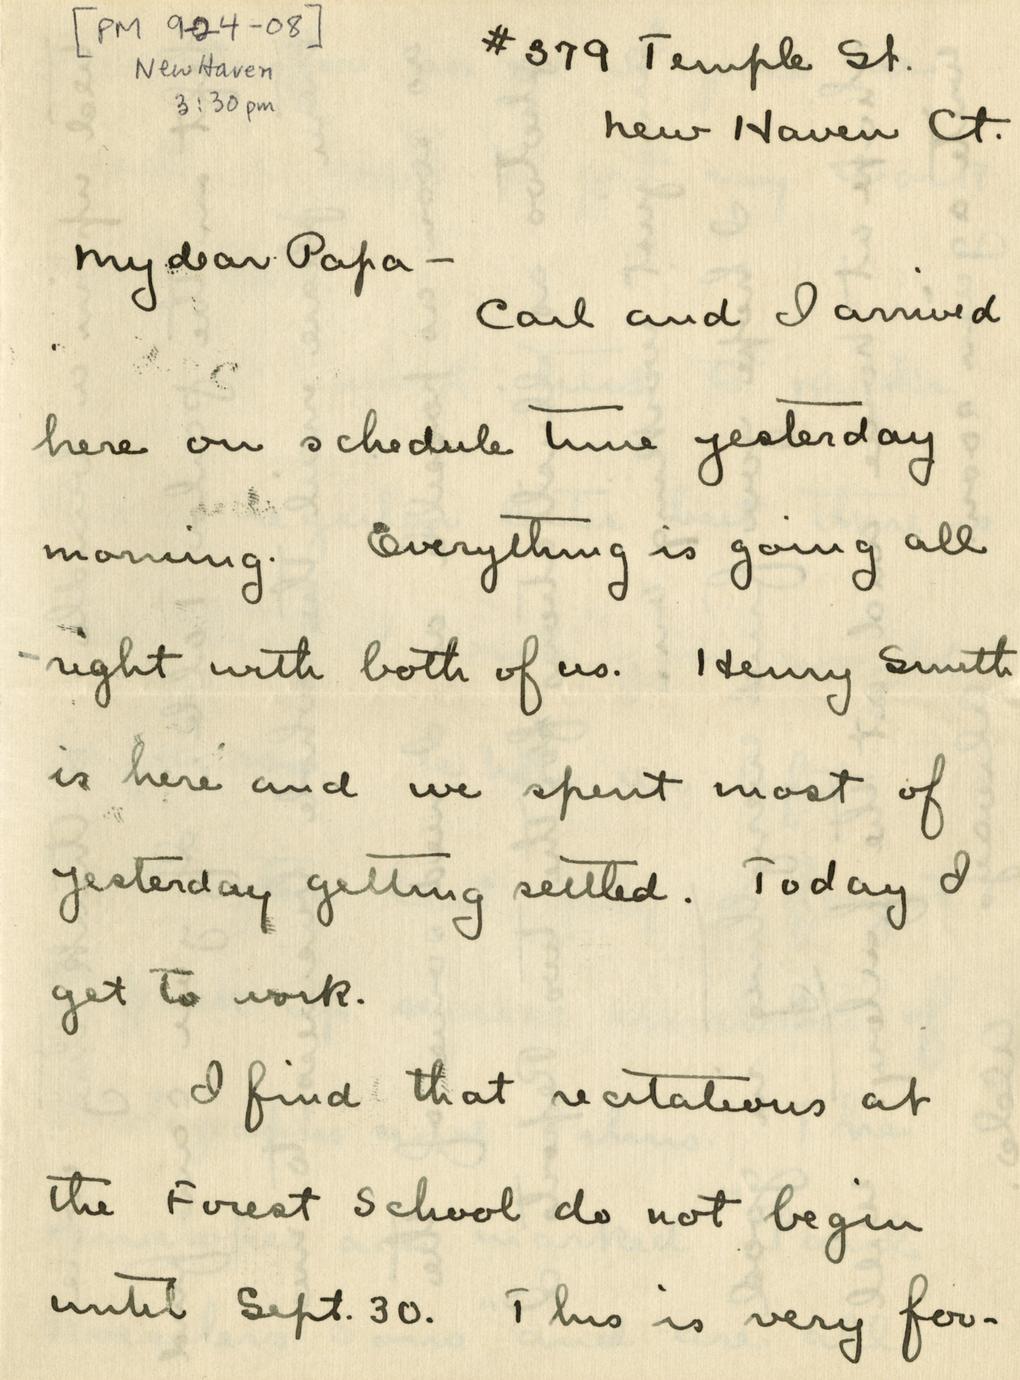 [PM 9-24-08]
New Haven
3:30 pm
#379 Temple St.
New Haven Ct.
My dear Papa —
Carl and I arrived
here on schedule time yesterday
morning. Everything is going all
right with both of us. Henry Smith
is here and we spent most of
yesterday getting settled. Today I
get to work.
I find that recitations at
the Forest School do not begin
until Sept. 30. This is very for-